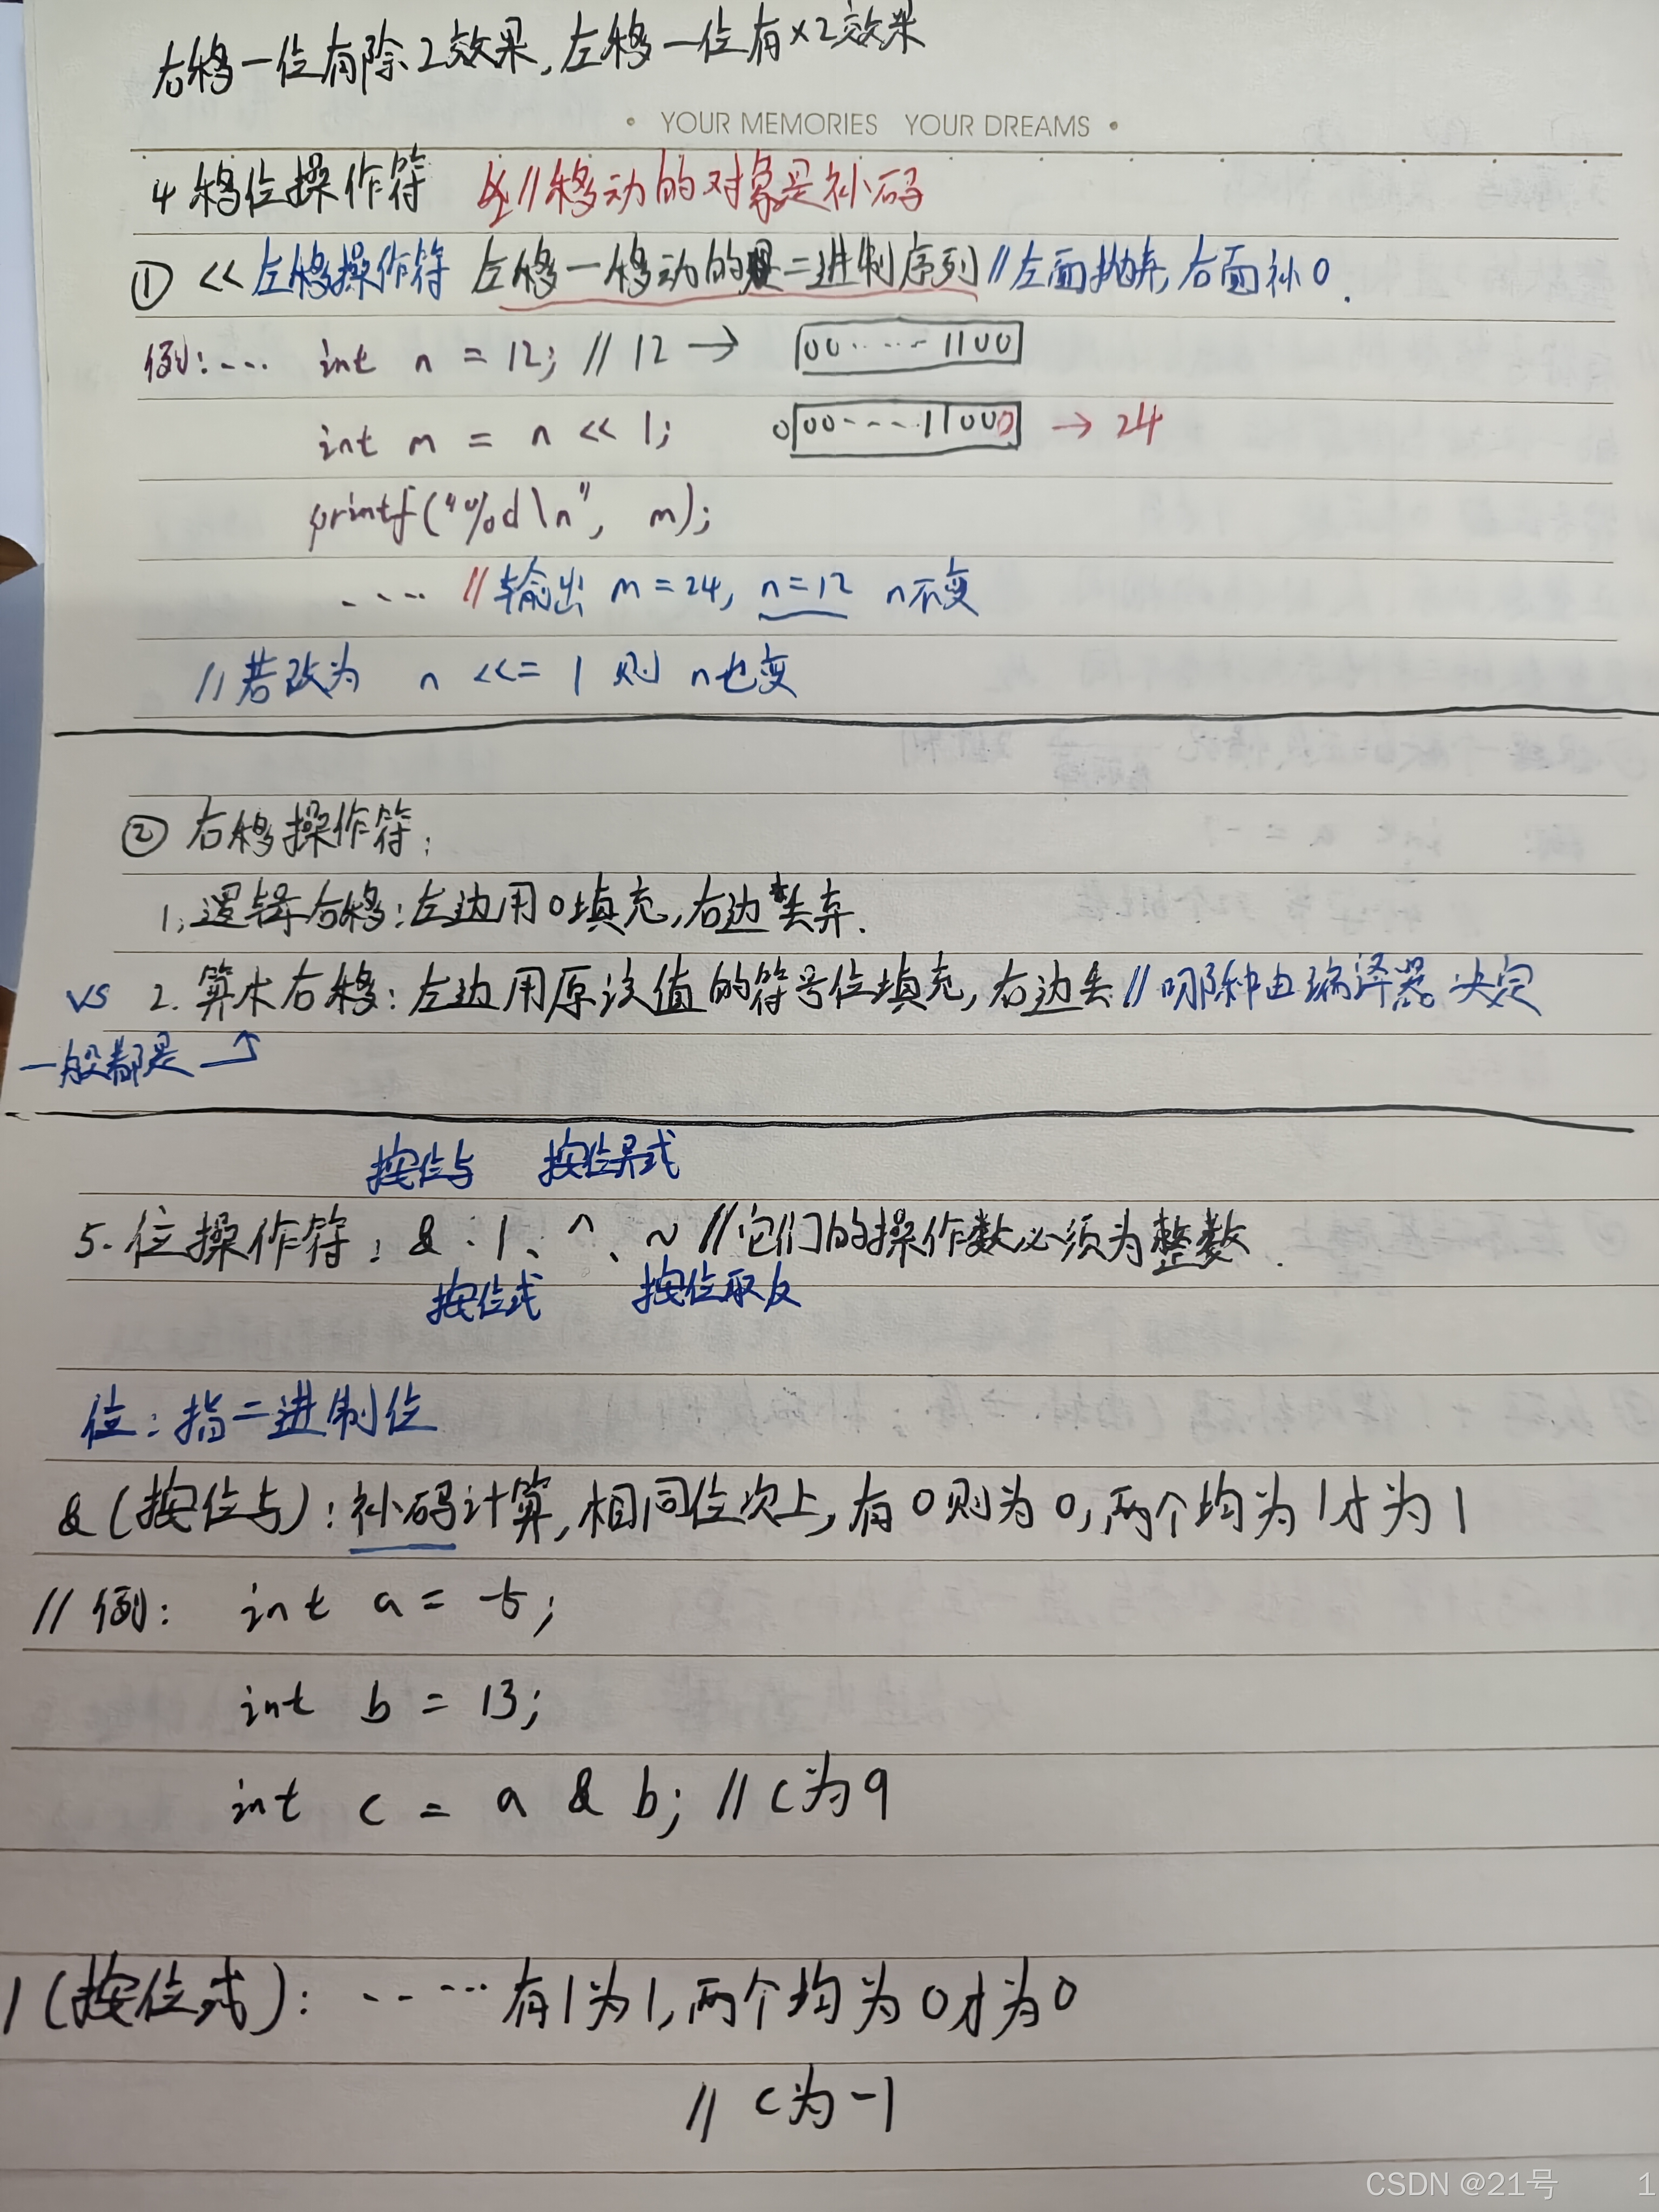 右移一位有除2效果,左移一位有×2效果
• YOUR MEMORIES YOUR DREAMS •
4 移位操作符 //移动的对象是补码
① << 左移操作符 左移一移动的是二进制序列 //左面抛弃,右面补0.
例:... int n = 12; // 12 → 00·····1100
int m = n << 1; 0 00·····11000 → 24
printf("%d\n", m);
.... //输出 m=24, n=12 n不变
//若改为 n <<= 1 则 n也变
② 右移操作符:
1.逻辑右移:左边用0填充,右边丢弃.
vs 2. 算术右移:左边用原该值的符号位填充,右边丢 //哪种由编译器决定
一般都是 →
按位与 按位异式
5.位操作符: & . |、^、~ //它们的操作数必须为整数.
按位式 按位取反
位:指二进制位
& (按位与):补码计算,相同位次上,有0则为0,两个均为1才为1
// 例: int a = -5;
int b = 13;
int c = a & b; // c为9
| (按位式): ······有1为1,两个均为0才为0
// c为-1
CSDN @21号 1